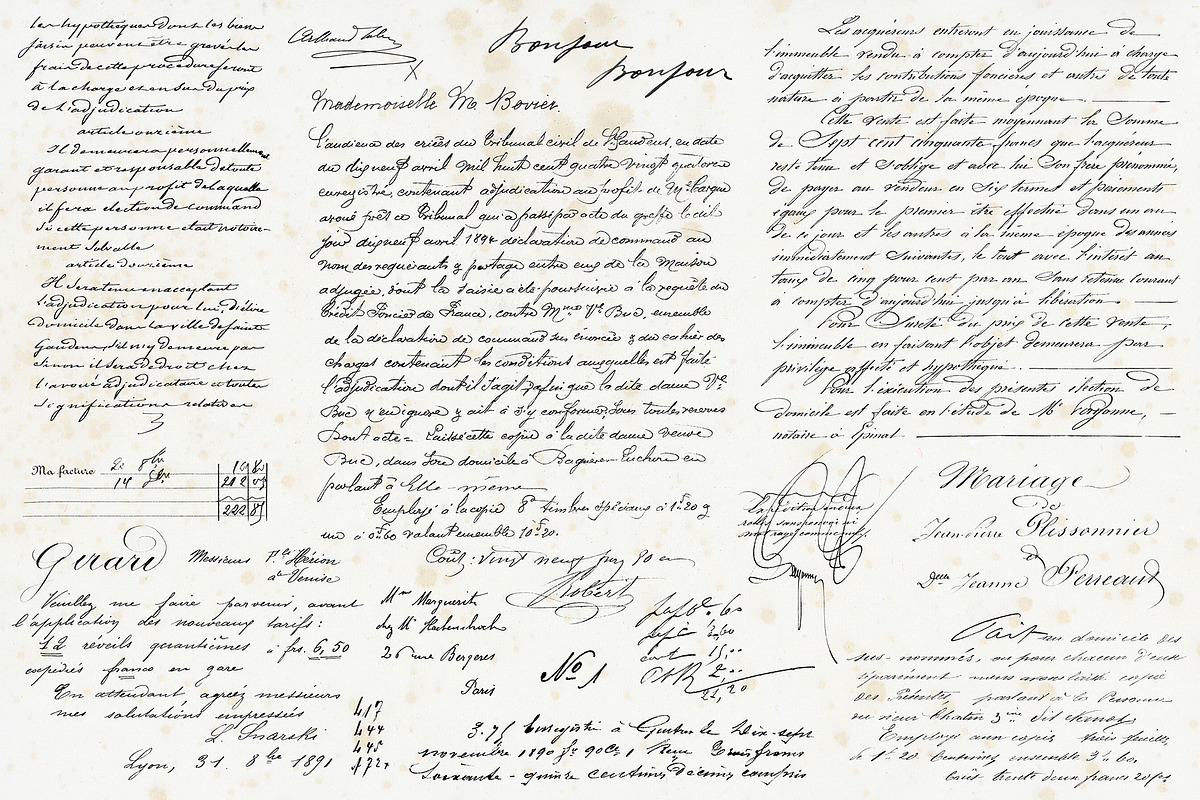 les hypothèques dont les biens
saisis peuvent être grevés les
frais de cette procédure seront
à la charge et en sus du prix
de l'adjudication
article onzième
Il demeurera personnellement
garant et responsable de toute
personne au profit de laquelle
il fera election de command
si cette personne etait notoire-
ment Solvable
article douzième
Il sera tenu en acceptant
l'adjudication pour lui, d'élire
domicile dans la ville de Saint
Gaudens, s'il n'y demeure pas
Sinon il sera de droit chez
l'avoué adjudicataire et toutes
significations relatives
Ma facture
19 80
202 05
222 85
Bonjour
Bonjour
Mademoiselle Ma Bovier
L'audience des criées du Tribunal civil de St Gaudens, en date
du dixneuf avril mil huit cent quatre vingt quatorze
enregistré, contenant adjudication au profit de Me Cargue
avoué près ce Tribunal qui a passé par acte du greffe le dit
jour dixneuf avril 1894 déclaration de command au
nom des requérants y partage entre eux de la Maison
adjugée, dont la saisie a été poursuivie à la requête du
Crédit Foncier de France, contre Mme Vve Buc, ensemble
de la déclaration de command sus énoncée & du cahier des
charges contenant les conditions auxquelles est faite
l'adjudication dont il s'agit, afin que la dite dame Vve
Buc n'en ignore & ait à s'y conformer, Sous toutes reserves
Dont acte = Laissé cette copie à la dite dame veuve
Buc, dans son domicile à Bagnères-Luchon en
parlant à Elle-même
Employé à la copie 8 timbres spéciaux à 1f 20 &
un à 0f 60 valant ensemble 10f 20.
Coût: vingt neuf frs 90 c
Robert
Les acquéreurs entreront en jouissance de
l'immeuble vendu à compter d'aujourd'hui à charge
d'acquitter les contributions foncières et autres de toute
nature à partir de la même époque.
Cette vente est faite moyennant la Somme
de Sept cent cinquante francs que l'acquéreur
reste tenu et s'oblige et avec lui Son frère prénommé,
de payer au vendeur en Six termes et paiements
égaux pour le premier être effectué dans un an
de ce jour et les autres à la même époque des années
immédiatement Suivantes, le tout avec l'intérêt au
taux de cinq pour cent par an Sans retenue courant
à compter d'aujourd'hui jusqu'à libération
Pour Sureté du prix de cette vente,
l'immeuble en faisant l'objet demeurera par
privilège affecté et hypothéqué.
Pour l'exécution des présentes élection de
domicile est faite en l'étude de Me
notaire à Epinal
Girard
Messieurs Vve Hérion
à Venise
Veuillez me faire parvenir, avant
l'application des nouveaux tarifs:
12 réveils quantièmes à frs. 6,50
expédiés franco en gare
En attendant agréez messieurs
mes salutations empressées
L. Snarski
Lyon, 31. 8bre 1891
417
444
445
Mme Marguerite
chez Mr
26 rue Bergères
Paris
No 1
21,20
3.75 Enregistré à le Dix-sept
novembre 1890 fo 90 Ce 1 Reçu Trois francs
Soixante-quinze centimes Décimes compris
Mariage
de
Jean-Pierre Plissonnier
&
Delle Jeanne Perreaut
Fait au domicile des
sus-nommés, où pour chacun d'eux
séparément nous avons laissé copie
des Présentes, parlant à la Personne
Employé aux copies trois feuilles
de 1f 20 Centimes, ensemble 3f 60.
Coût trente deux francs 20 ces